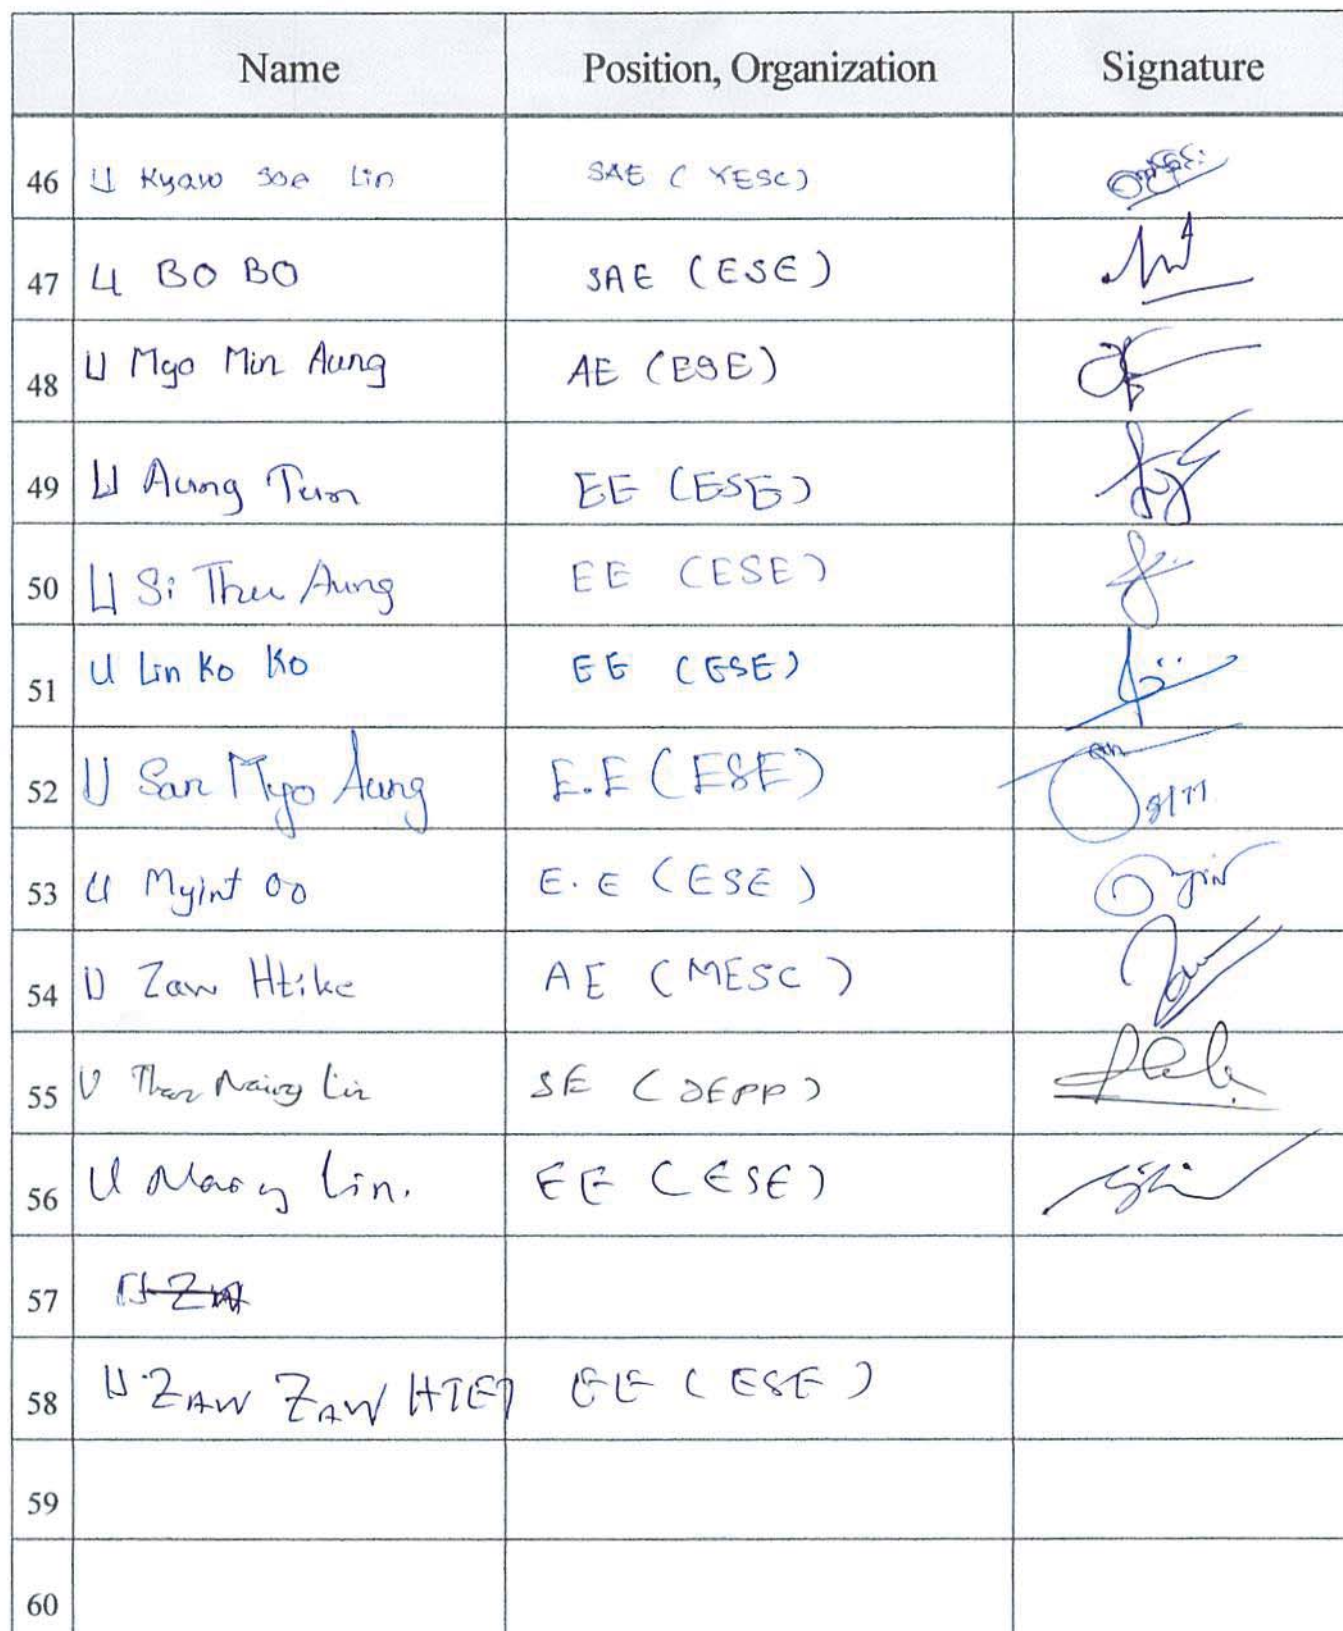 Name Position, Organization Signature
46 U Kyaw Soe Lin SAE (YESC)
47 U BO BO SAE (ESE)
48 U Myo Min Aung AE (ESE)
49 U Aung Tun EE (ESE)
50 U Si Thu Aung EE (ESE)
51 U Lin Ko Ko EE (ESE)
52 U San Myo Aung E.E (ESE) 8/11
53 U Myint Oo E.E (ESE)
54 U Zaw Htike AE (MESC)
55 U Than Naing Lin SE (DEPP)
56 U Naing Lin. EE (ESE)
57
58 U ZAW ZAW HTET EE (ESE)
59
60